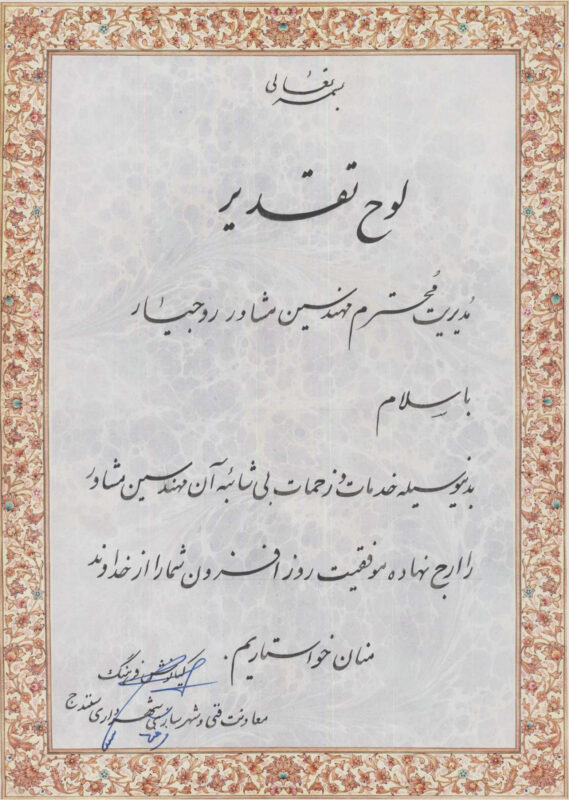 بسمه تعالی
لوح تقدیر
مدیریت محترم مهندسین مشاور روجیار
با سلام
بدینوسیله خدمات و زحمات بی شائبه آن مهندسین مشاور
را ارج نهاده موفقیت روز افزون شما را از خداوند
منان خواستاریم.
فرهنگ
معاونت فنی و شهرسازی شهرداری سنندج